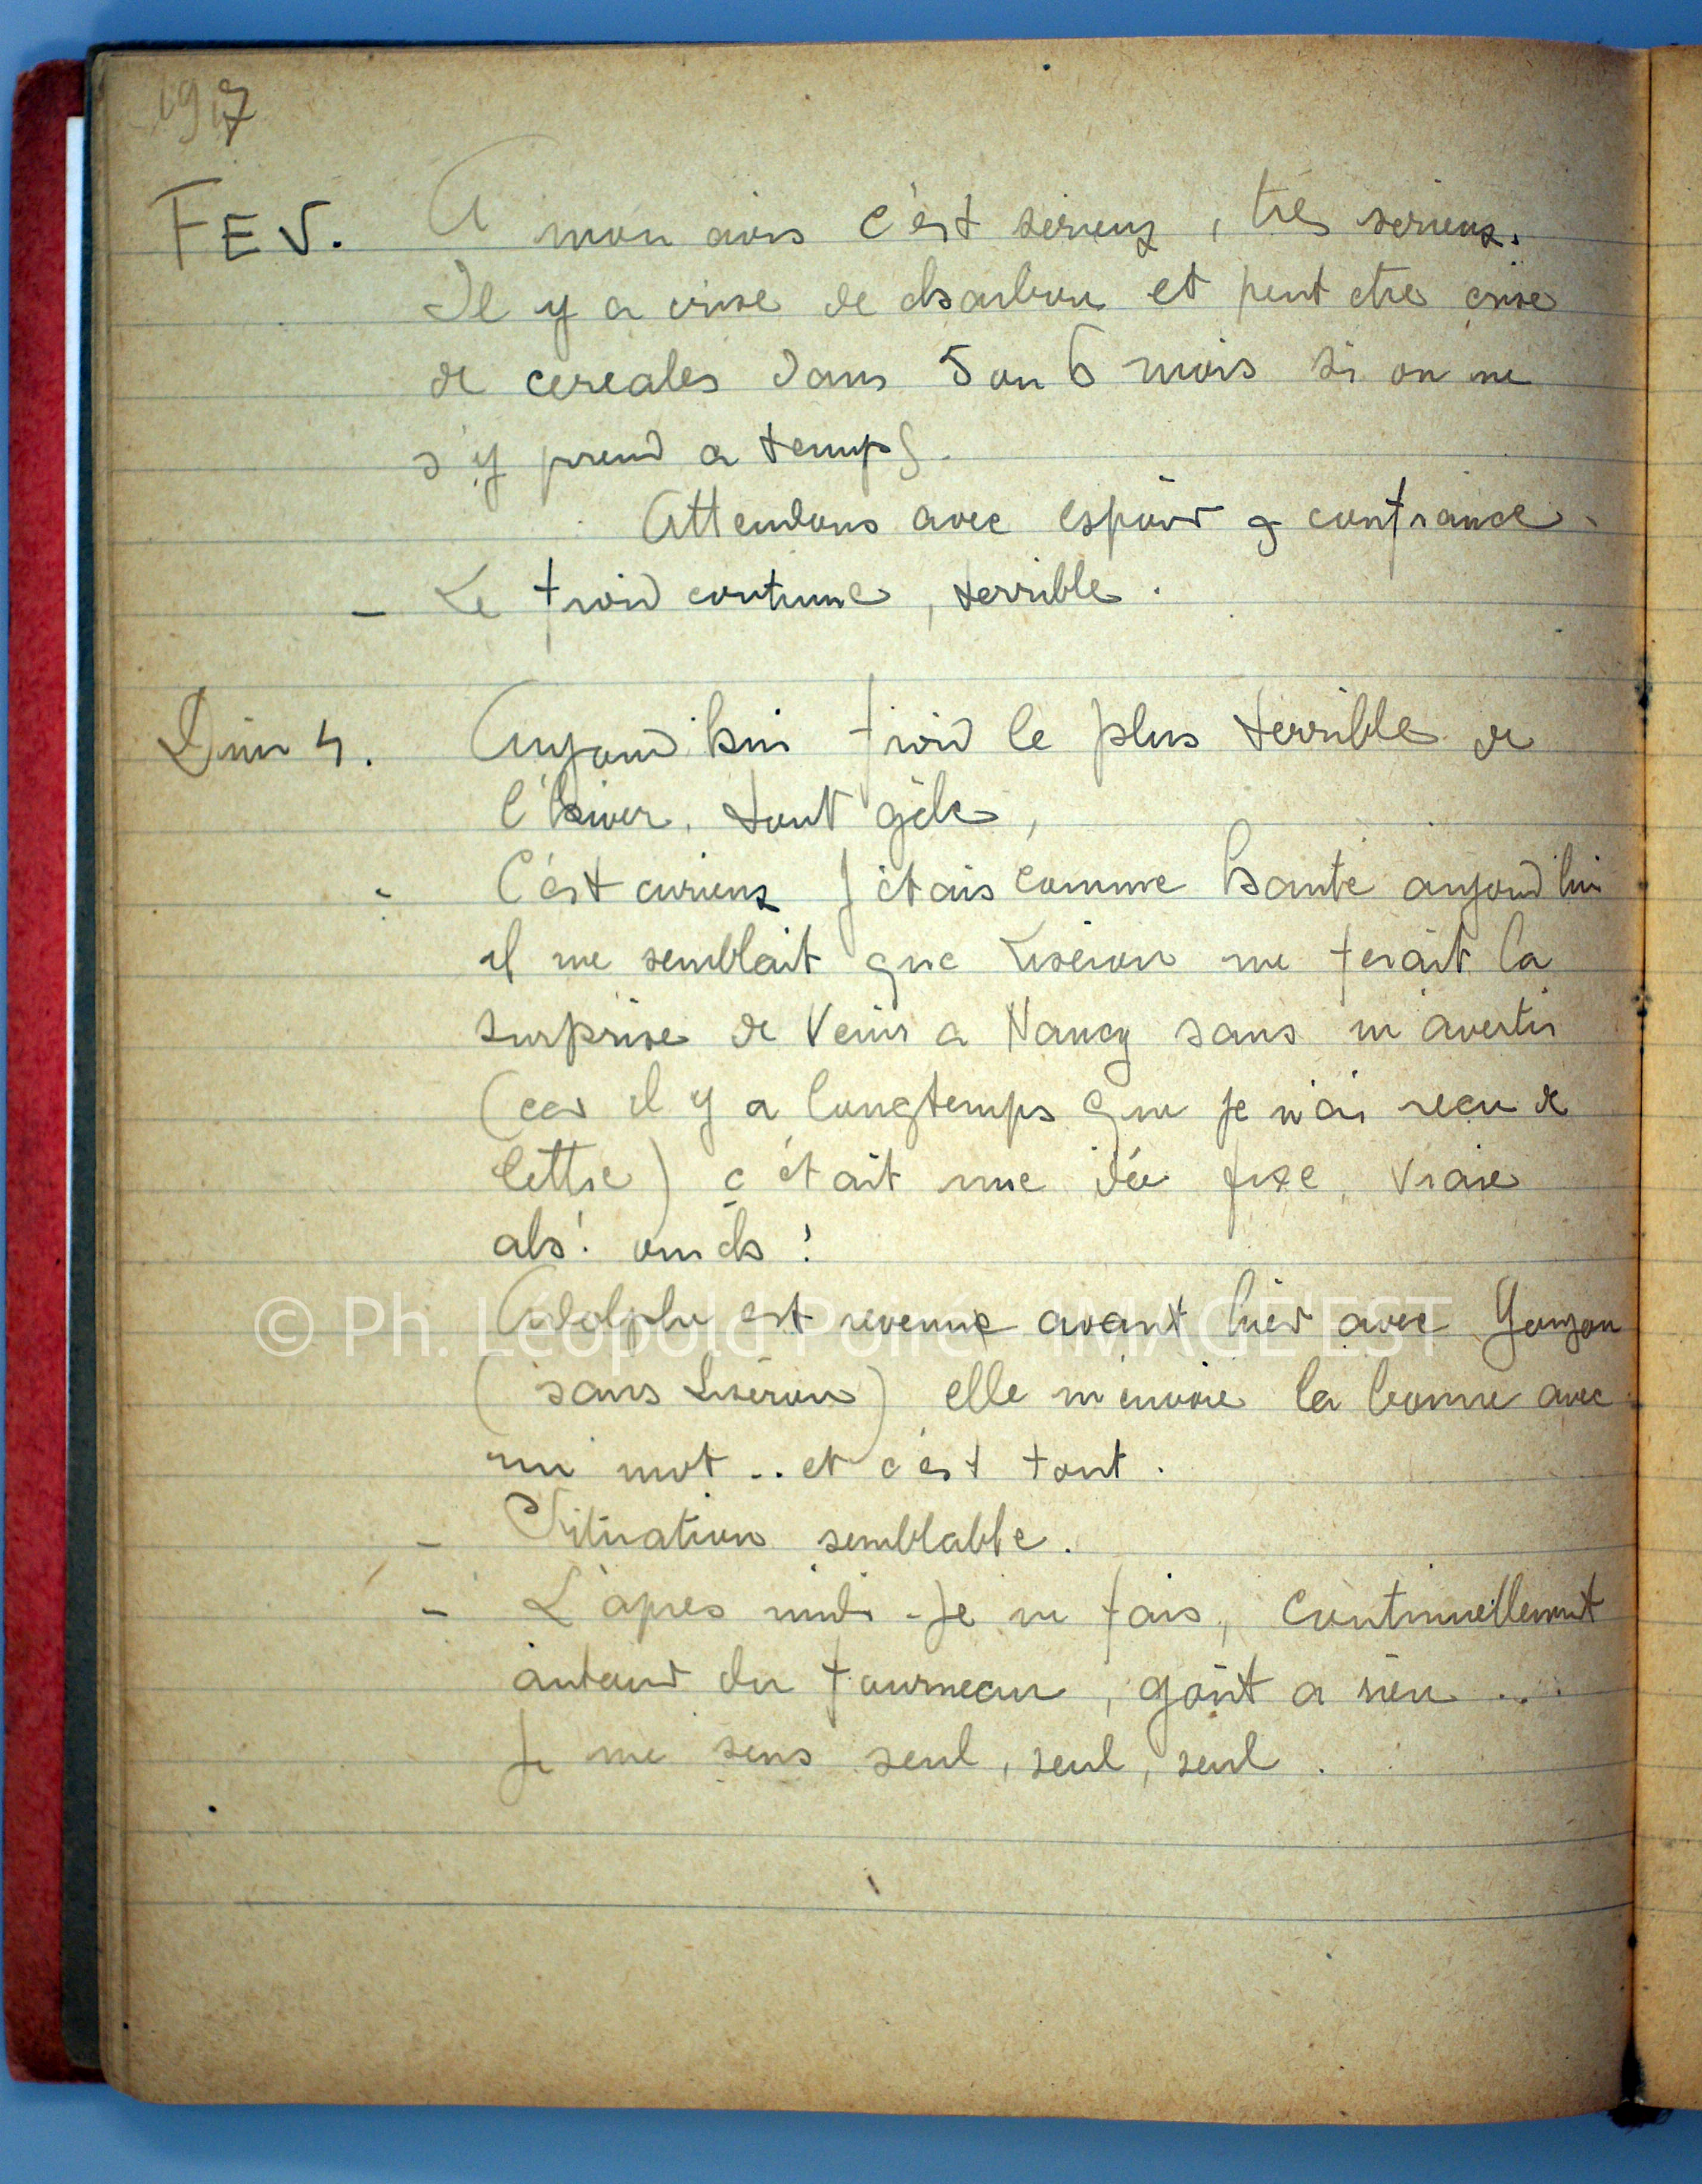 1917
FEV. A mon avis c'est serieux, très serieux.
Il y a crise de charbon et peut etre crise
de cereales dans 5 ou 6 mois si on ne
s'y prend a temps.
Attendons avec espoir & confiance.
- Le froid continue, terrible.
Dim 4. Aujourd'hui froid le plus terrible de
l'hiver. tout gèle,
- C'est curieux j'étais comme hanté aujourd'hui
il me semblait que Liseron me ferait la
surprise de venir a Nancy sans m'avertir
(car il y a longtemps que je n'ai reçu de
lettre) c'était une idée fixe, vraie
ah! ouich!
Adolphe est revenue avant hier avec
(sans Liseron) elle m'envoie la bonne avec
un mot .. et c'est tout.
- Situation semblable.
- L'après midi - je ne fais, continuellement
autour du fourneau, goût a rien ...
Je me sens seul, seul, seul.
© Ph. Léopold Poiré IMAGE'EST